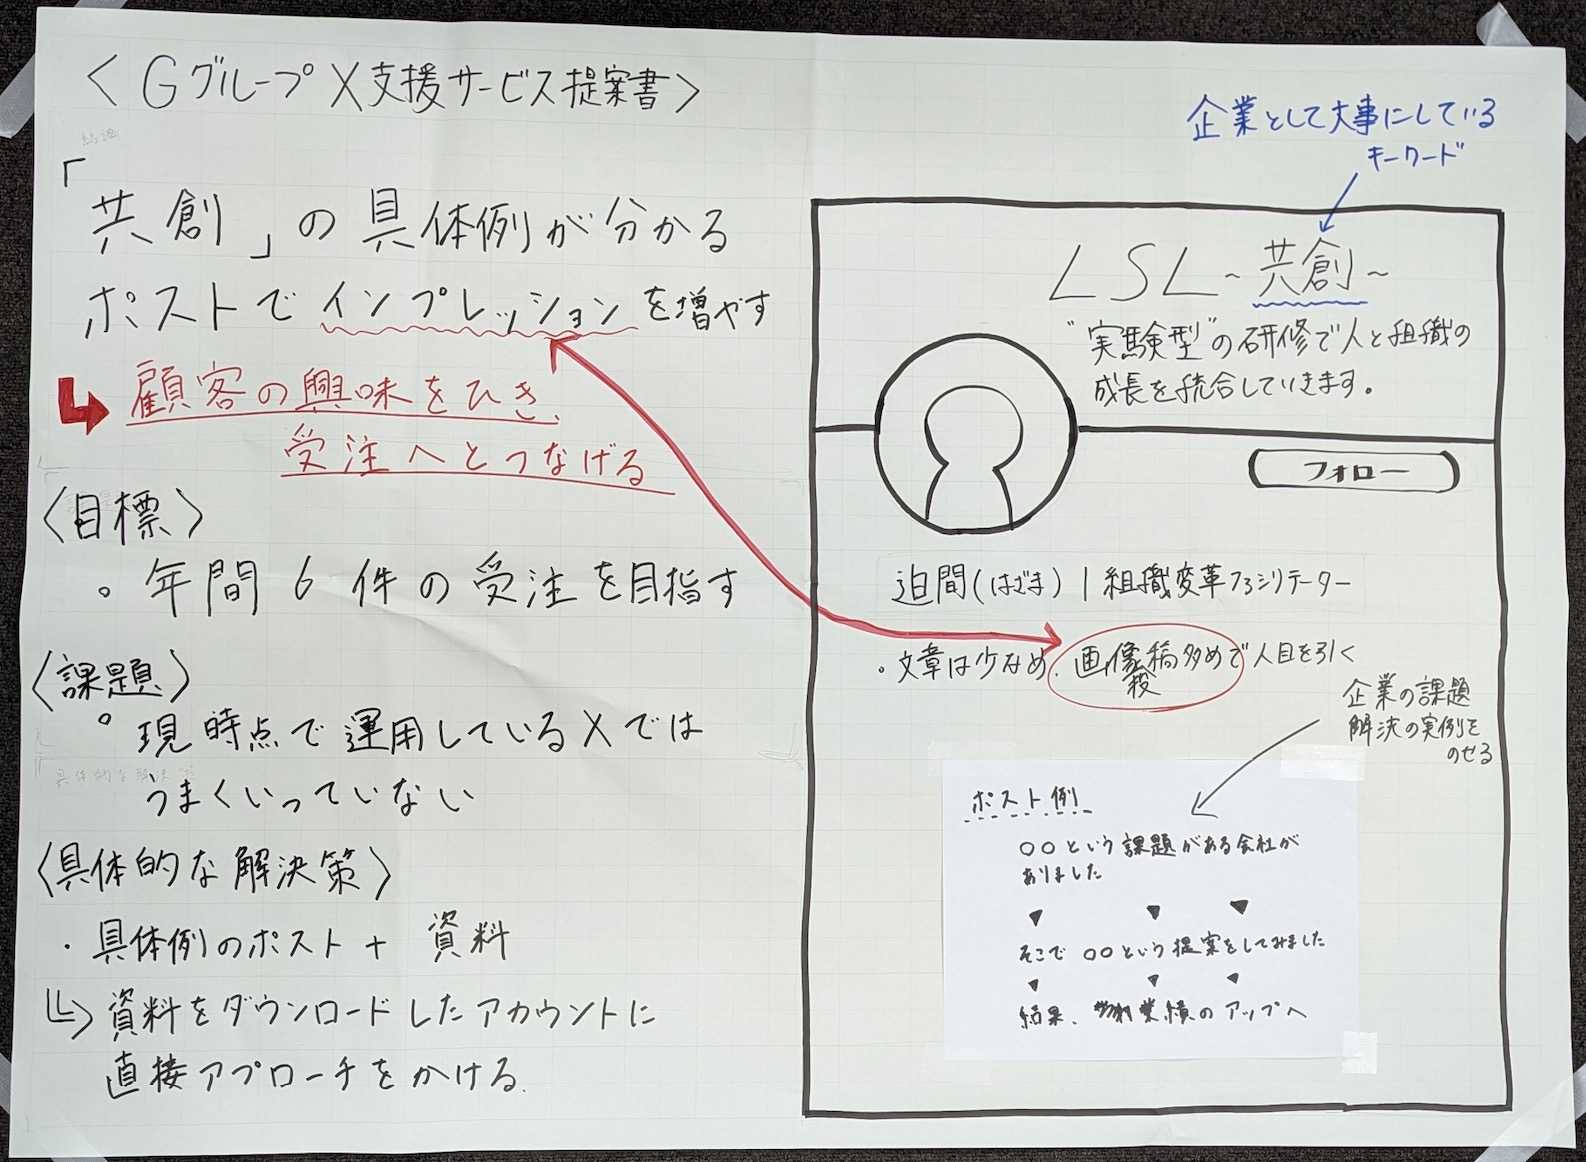 <Gグループ X支援サービス提案書>
「共創」の具体例が分かる
ポストでインプレッションを増やす
顧客の興味をひき、
受注へとつなげる
〈目標〉
。年間6件の受注を目指す
〈課題〉
。現時点で運用しているXでは
うまくいっていない
〈具体的な解決策〉
・具体例のポスト+資料
資料をダウンロードしたアカウントに
直接アプローチをかける.
企業として大事にしている
キーワード
LSL~共創~
"実験型"の研修で人と組織の
成長を統合していきます。
フォロー
迫間(はざま)|組織変革ファシリテーター
・文章は少なめ、画像多めで人目を引く
企業の課題
解決の実例を
のせる
ポスト例
○○という課題がある会社が
ありました
▼ ▼ ▼
そこで○○という提案をしてみました
▼ ▼ ▼
結果、業績のアップへ